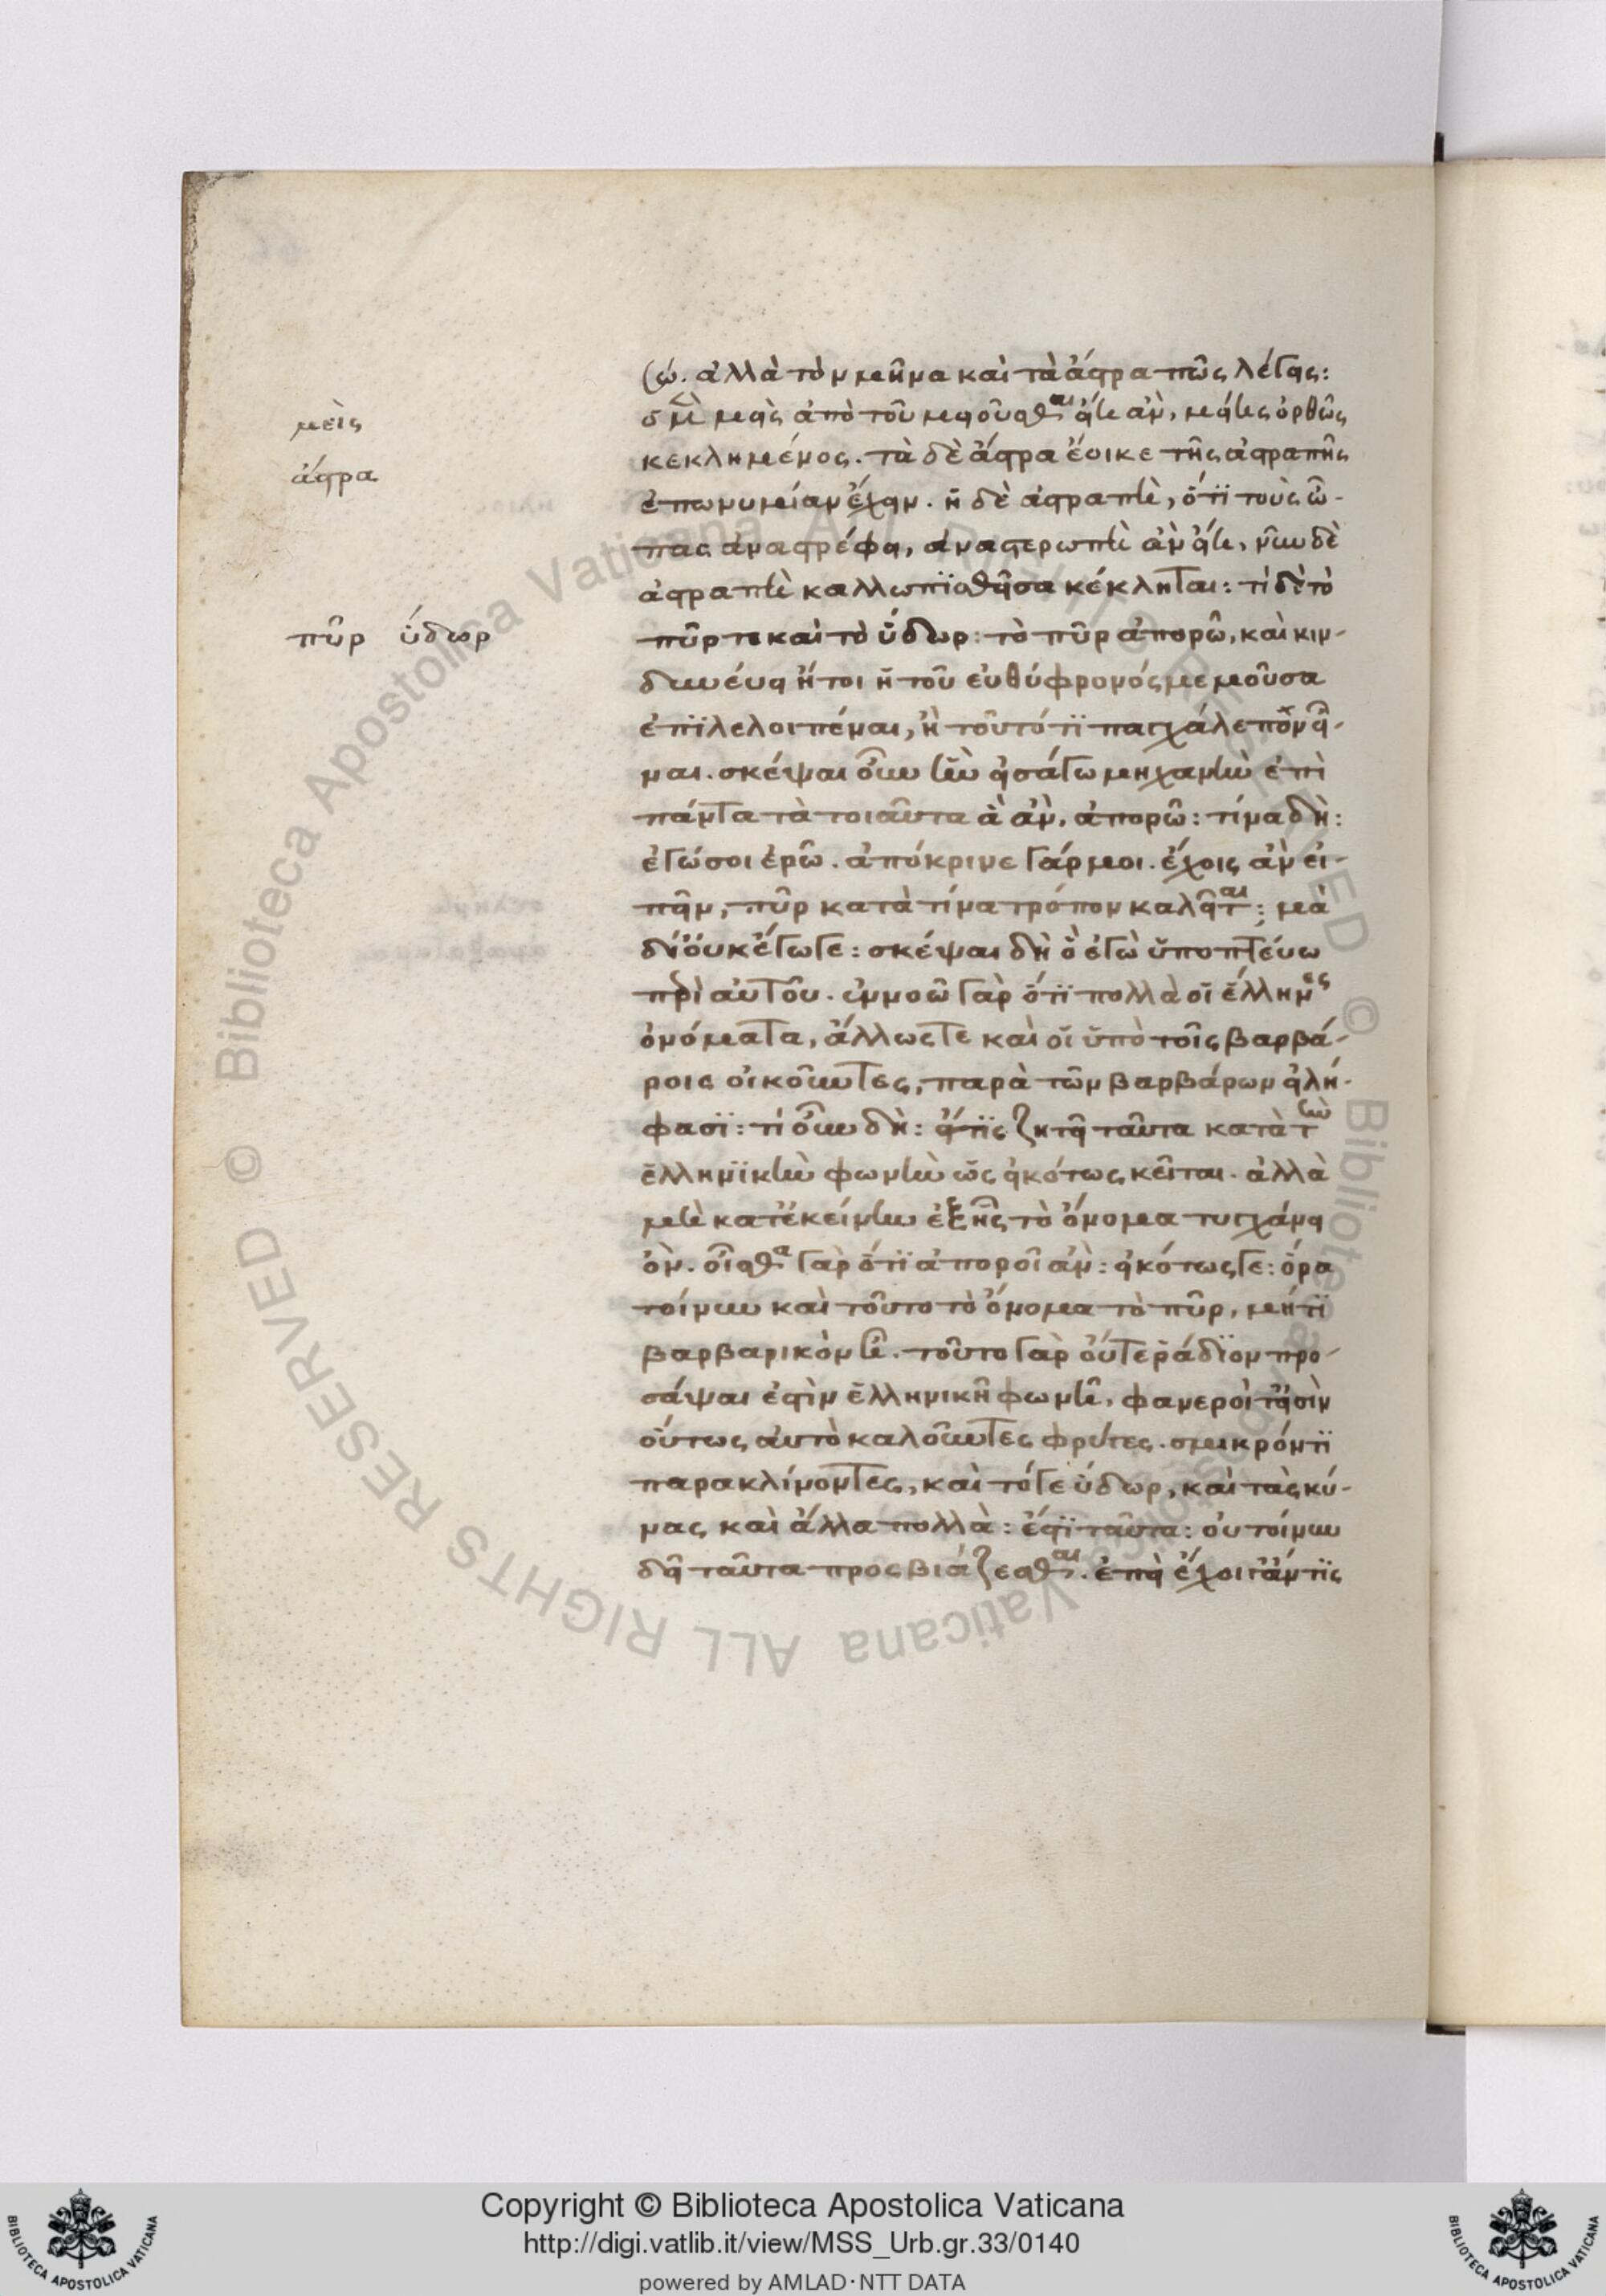 μεὶς
ἄστρα
πῦρ ὕδωρ
σω. ἀλλὰ τὸν μῆνα καὶ τὰ ἄστρα πῶς λέγεις:
ὁ μὲν μεὶς ἀπὸ τοῦ μειοῦσθαι εἴη ἂν, μείης ὀρθῶς
κεκλημένος. τὰ δὲ ἄστρα ἔοικε τῆς ἀστραπῆς
ἐπωνυμίαν ἔχειν. ἡ δὲ ἀστραπὴ, ὅτι τοὺς ὦ-
πας ἀναστρέφει, ἀναστερωπὴ ἂν εἴη, νῦν δὲ
ἀστραπὴ καλλωπισθεῖσα κέκληται: τί δὲ τὸ
πῦρ τε καὶ τὸ ὕδωρ: τὸ πῦρ ἀπορῶ, καὶ κιν-
δυνεύει ἤτοι ἡ τοῦ εὐθύφρονός με μοῦσα
ἐπιλελοιπέναι, ἢ τοῦτό τι παγχάλεπον εἶ-
ναι. σκέψαι οὖν ἣν εἰσάγω μηχανὴν ἐπὶ
πάντα τὰ τοιαῦτα ἃ ἂν, ἀπορῶ: τίνα δὴ:
ἐγώ σοι ἐρῶ. ἀπόκριναι γάρ μοι. ἔχοις ἂν εἰ-
πεῖν, πῦρ κατὰ τίνα τρόπον καλεῖται: μὰ
δί' οὐκ ἔγωγε: σκέψαι δὴ ὃ ἐγὼ ὑποπτεύω
περὶ αὐτοῦ. ἐννοῶ γὰρ ὅτι πολλὰ οἱ ἕλληνες
ὀνόματα, ἄλλως τε καὶ οἱ ὑπὸ τοῖς βαρβά-
ροις οἰκοῦντες, παρὰ τῶν βαρβάρων εἰλή-
φασι: τί οὖν δὴ: εἴ τις ζητεῖ ταῦτα κατὰ τὴν
ἑλληνικὴν φωνὴν ὡς εἰκότως κεῖται. ἀλλὰ
μὴ κατ' ἐκείνην ἐξ ἧς τὸ ὄνομα τυγχάνει
ὂν. οἶσθα γὰρ ὅτι ἀποροῖ ἂν: εἰκότως γε: ὅρα
τοίνυν καὶ τοῦτο τὸ ὄνομα τὸ πῦρ, μή τι
βαρβαρικὸν ᾖ. τοῦτο γὰρ οὔτε ῥάδιον προ-
σάψαι ἐστὶν ἑλληνικῇ φωνῇ, φανεροί τ' εἰσὶν
οὕτως αὐτὸ καλοῦντες φρύγες. σμικρόν τι
παρακλίνοντες, καὶ τό γε ὕδωρ, καὶ τὰς κύ-
νας καὶ ἄλλα πολλὰ: ἔστι ταῦτα: οὐ τοίνυν
δεῖ ταῦτα προσβιάζεσθαι. ἐπεὶ ἔχοι γ' ἄν τις
Copyright © Biblioteca Apostolica Vaticana
http://digi.vatlib.it/view/MSS_Urb.gr.33/0140
powered by AMLAD·NTT DATA
© Biblioteca Apostolica Vaticana ALL RIGHTS RESERVED
© Biblioteca Apostolica Vaticana ALL RIGHTS RESERVED
BIBLIOTECA APOSTOLICA VATICANA
BIBLIOTECA APOSTOLICA VATICANA